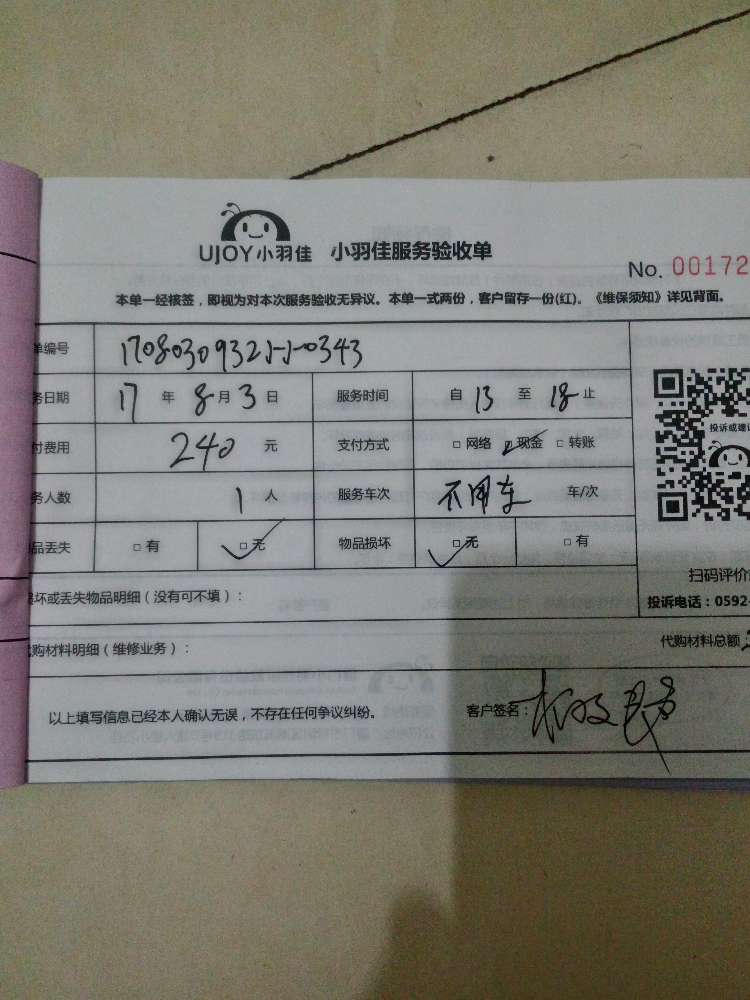 UJOY小羽佳 小羽佳服务验收单
No. 00172
本单一经核签，即视为对本次服务验收无异议。本单一式两份，客户留存一份(红)。《维保须知》详见背面。
单编号
务日期 17 年 8 月 3 日 服务时间 自 13 至 18 止
付费用 240 元 支付方式 □ 网络 □ 现金 □ 转账
务人数 1 人 服务车次 不用车 车/次
品丢失 □ 有 □ 无 物品损坏 □ 无 □ 有
投诉或建议
扫码评价
投诉电话：0592-
损坏或丢失物品明细（没有可不填）：
代购材料明细（维修业务）： 代购材料总额
以上填写信息已经本人确认无误，不存在任何争议纠纷。 客户签名：